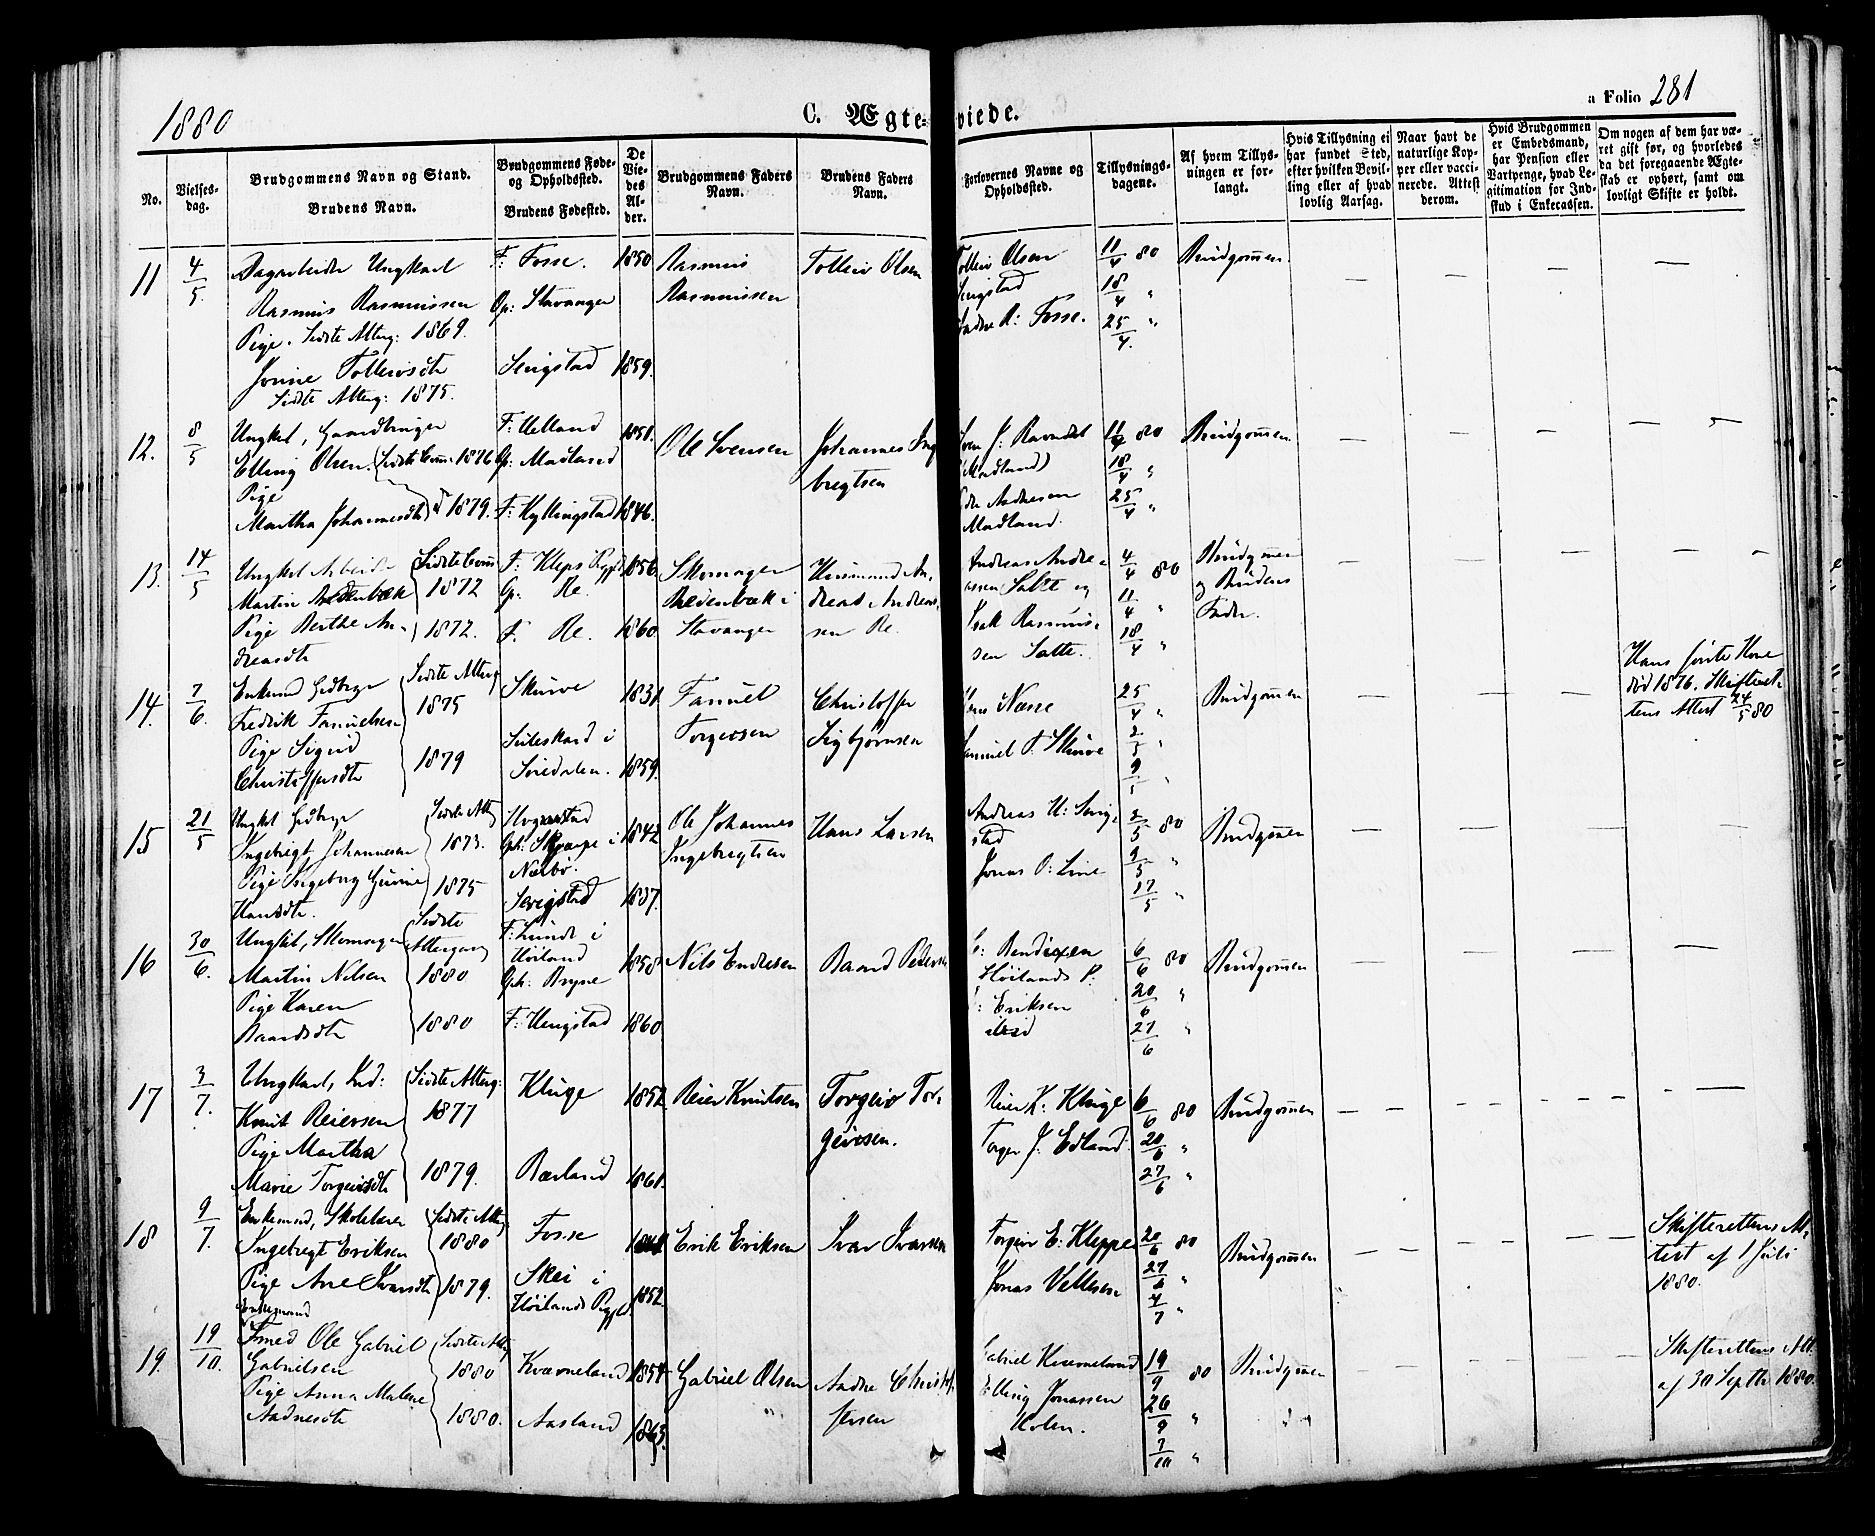 1880
C. Ægte-
viede.
a Folio 281
No.
Vielses-
dag.
Brudgommens Navn og Stand.
Brudens Navn.
Brudgommens Føde-
og Opholdssted.
Brudens Fødested.
De
Vie-
des
Al-
der.
Brudgommens Faders
Navn.
Brudens Faders
Navn.
Forlovernes Navne og
Opholdssted.
Tillysnings-
dagene.
Af hvem Tillys-
ningen er for-
langt.
Hvis Tillysning ei
har fundet Sted,
efter hvilken Bevil-
ling eller af hvad
lovlig Aarsag.
Naar havt de
naturlige Kop-
per eller vacci-
nerede. Attest
derom.
Hvis Brudgommen
er Embedsmand,
har Pension eller
Vartpenge, hvad Le-
gitimation for Ind-
skud i Enkecassen.
Om nogen af dem har væ-
ret gift før, og hvorledes
da det foregaaende Ægte-
skab er ophørt, samt om
lovligt Skifte er holdt.
11
4/5.
Dagarbeider Ungkarl
Rasmus Rasmussen
Pige. Sidste Alterg: 1869.
Jorine Tolleivsdtr
Sidste Alterg: 1875.
F: Fosse.
Op: Stavanger
Serigstad
1850
1859.
Rasmus
Rasmussen
Tolleiv Olsen
Tolleiv Olsen
Serigstad
Andre R: Fosse.
11/4 80
18/4 "
25/4. "
Brudgommen
12.
8/5
Ungkl, Gaardbruger
Elling Olsen. (Sidste Comm: 1876
Pige
Martha Johannesdtr) d 1879.
F: Uelland
Op: Madland
F: Kyllingstad
1851.
1846.
Ole Svensen
Johannes Ing
bregtsen
Sven J: Ravndal
(Madland)
Ole Andresen
Madland.
11/4 80
18/4 "
25/4 "
Brudgommen
13.
14/5
Ungkl Arbeider
Martin Bredenbæk
Pige Berthe An-
dreasdtr
Sidste Comm
1872
1872.
F. Kleps Prgjd
Op: Re.
F. Re.
1856
1860
Skomager
Bredenbæk i
Stavanger
Andreas Andre-
assen Salte og
Isak Rasmus-
sen Salte.
4/4 80
11/4 "
18/4 "
Brudgommen
og Brudens
Fader.
14.
7/6
Enkemd Gdbrgr
Fredrik Fanuelsen
Pige Sigrid
Christoffersdtr
Sidste Alterg
1875
1879
Skurve
Suleskard i
Siredalen.
1831
1859.
Fanuel
Torgersen
Christoffer
Sigbjørnsen
Næsse
Samuel T. Skurve
25/4 "
2/5 "
9/5 "
Brudgommen
Hans første Kone
død 1876. Skifteret-
tens Attest 24/5 80
15
21/5
Ungkl Gdbrgr
Ingebregt Johannesen
Pige Ingeborg Gurine
Hansdtr.
Sidste Alterg
1873.
1875
Hognestad
Oph: Skjærpe i
Nærbø.
Serigstad
1842
1837.
Ole Johannes
Ingebregtsen
Hans Larsen
Andreas H: Serig-
stad
Jonas O: Line
2/5 80
9/5 "
17/5 "
Brudgommen
16
30/6.
Ungkl, Skomager
Martin Nilsen
Pige Karen
Baardsdtr
Sidste
Altergang
1880
1880
F: Lunde i
Høiland
Oph: Bryne
F: Herigstad
1858
1860.
Nils Endresen
Baard Pedersen
C: Bendixen
Høilands P:
Eriksen
ibid
6/6 80
20/6 "
27/6 "
Brudgommen
17
3/7.
Ungkarl, Ind:
Knut Reiersen
Pige Martha
Marie Torgeirsdtr
Sidste Alterg:
1877
1879.
Kluge
Bærland
1852.
1861.
Reier Knutsen
Torgeir Tor-
geirsen.
Reier K: Kluge
Torger J: Edland.
6/6 80
20/6 "
27/6 "
Brudgommen
18
9/7.
Enkemnd, Skolelærer
Ingebregt Eriksen
Pige Ane Ivarsdtr
Sidste Alterg
1880
1879.
Fosse
Skei i
Høilands Prgjd
1852.
Erik Eriksen
Ivar Ivarsen
Torgeir E: Kleppe
Jonas Vallesen
20/6 80
27/6 "
4/7 "
Brudgommen
Skifterettens At-
test af 1 Juli
1880.
19.
19/10.
Enkemand
Smed Ole Gabriel
Gabrielsen
Pige Anna Malene
Andresdtr
Sidste Alterg
1880
1880.
Kverneland
Aasland
1854
1863.
Gabriel Olsen
"
Andre Christof-
fersen
Gabriel Kverneland
Elling Jonassen
Holen.
19/9 80
26/9 "
7/10 "
Brudgommen
Skifterettens Att.
af 30 Septbr 1880.